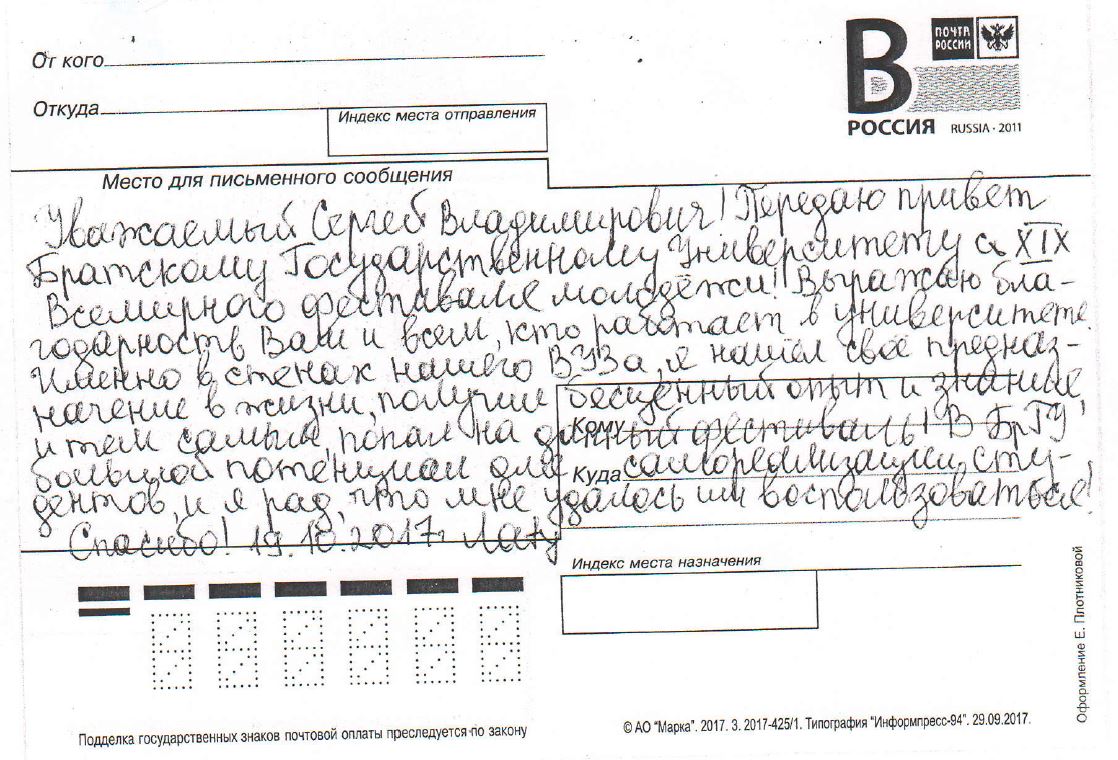 От кого
ПОЧТА РОССИИ
В
Откуда
Индекс места отправления
РОССИЯ RUSSIA · 2011
Место для письменного сообщения
Уважаемый Сергей Владимирович! Передаю привет
Братскому Государственному Университету с XIX
Всемирного фестиваля молодёжи! Выражаю бла-
годарность Вам и всем, кто работает в университете.
Именно в стенах нашего ВУЗа, я нашёл своё предназ-
начение в жизни, получил бесценный опыт и знания,
и тем самым, попал на данный фестиваль! В БрГУ
большой потенциал для самореализации сту-
дентов, и я рад, что мне удалось им воспользоваться!
Спасибо! 19.10.2017г
Кому
Куда
Индекс места назначения
Подделка государственных знаков почтовой оплаты преследуется по закону
© АО "Марка". 2017. З. 2017-425/1. Типография "Информпресс-94". 29.09.2017.
Оформление Е. Плотниковой